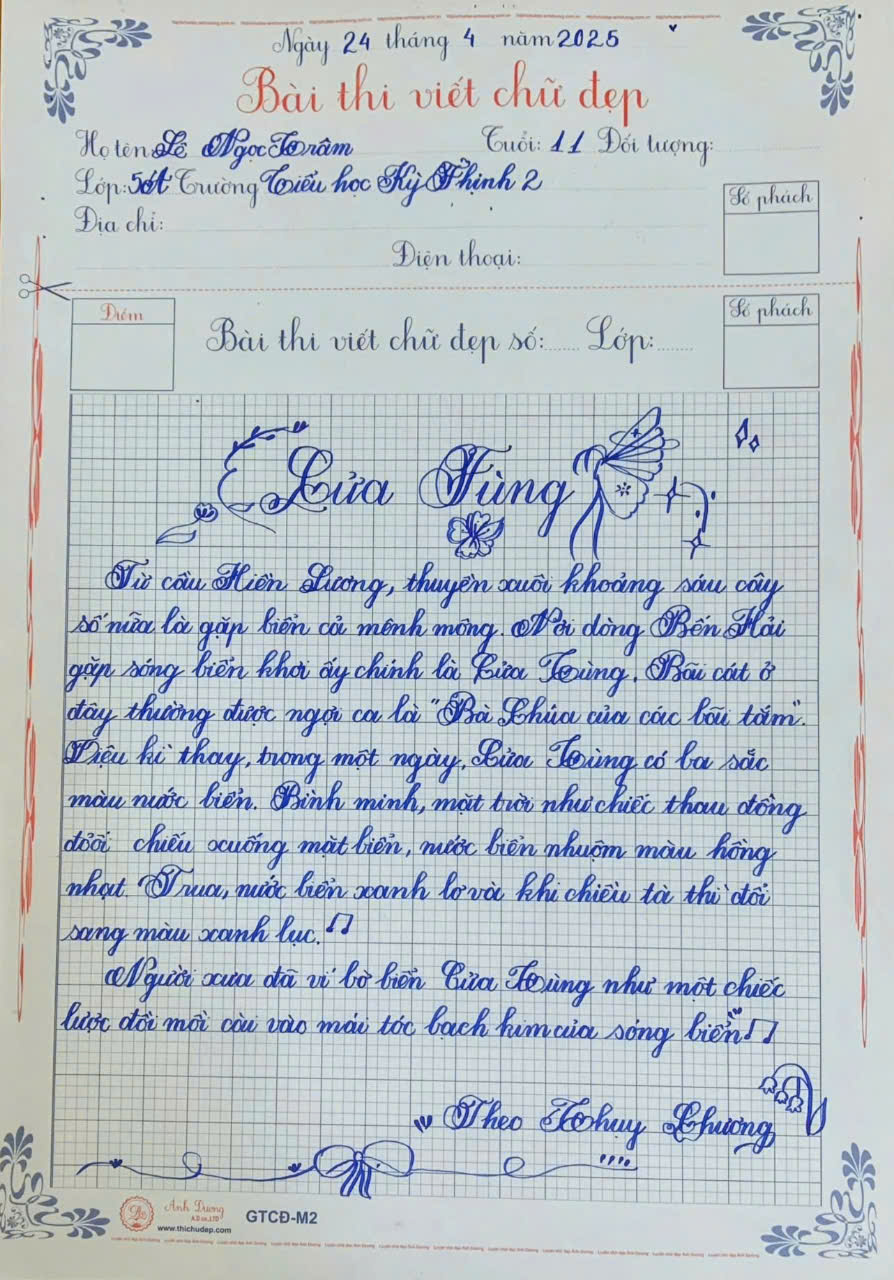 Ngày 24 tháng 4 năm 2025
Bài thi viết chữ đẹp
Họ tên: Lê Ngọc Trâm Tuổi: 11 Đối tượng:
Lớp: 5A Trường Tiểu học Kỳ Thịnh 2
Địa chỉ:
Điện thoại:
Số phách
Điểm
Bài thi viết chữ đẹp số: Lớp:
Số phách
Cửa Tùng
Từ cầu Hiền Lương, thuyền xuôi khoảng sáu cây
số nữa là gặp biển cả mênh mông. Nơi dòng Bến Hải
gặp sóng biển khơi ấy chính là Cửa Tùng. Bãi cát ở
đây thường được ngợi ca là "Bà Chúa của các bãi tắm".
Diệu kì thay, trong một ngày, Cửa Tùng có ba sắc
màu nước biển. Bình minh, mặt trời như chiếc thau đồng
đỏ ối chiếu xuống mặt biển, nước biển nhuộm màu hồng
nhạt. Trưa, nước biển xanh lơ và khi chiều tà thì đổi
sang màu xanh lục.
Người xưa đã ví bờ biển Cửa Tùng như một chiếc
lược đồi mồi cài vào mái tóc bạch kim của sóng biển
Theo Thụy Chương
Ánh Dương
A.D co.,LTD
www.thichudep.com
GTCĐ-M2